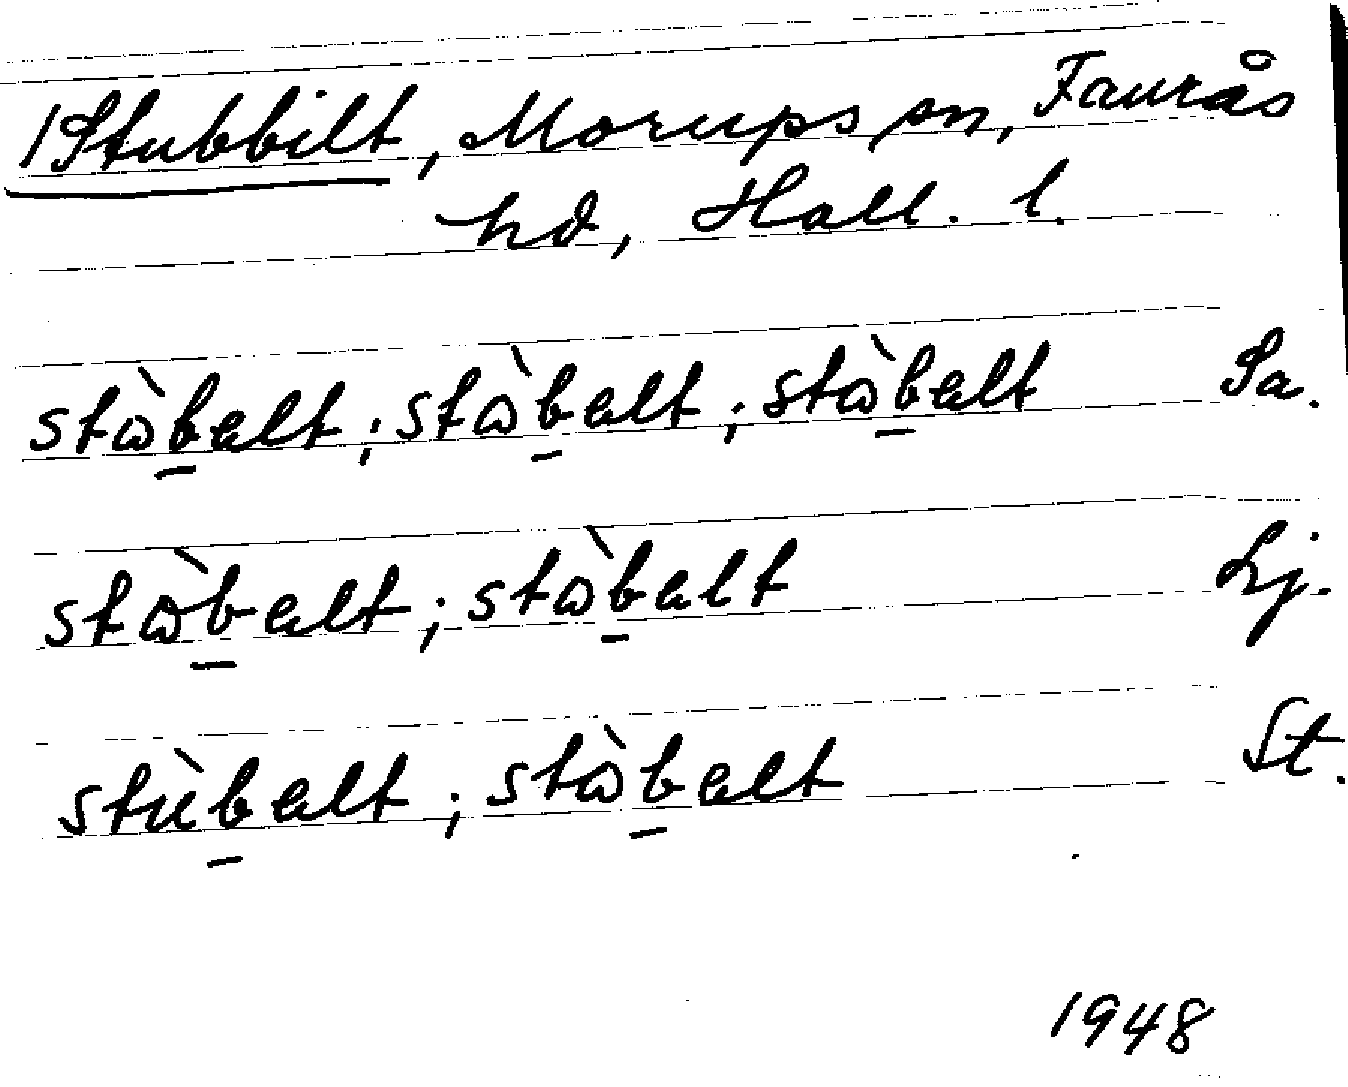 /Stubbilt, Morups sn, Faurås
hd, Hall. l.
stɷ̀b̲elt; stɷ̀b̲elt; stɷ̀b̲elt Sa.
stɷ̀b̲elt; stɷ̀b̲elt Lj.
stùb̲elt; stɷ̀b̲elt St.
1948